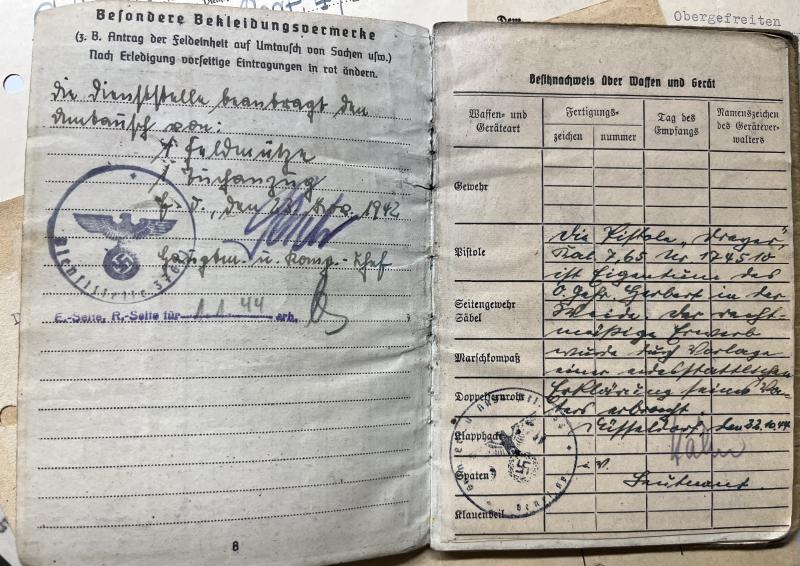 Obergefreiten
Dem
Besondere Bekleidungsvermerke
(z. B. Antrag der Feldeinheit auf Umtausch von Sachen usw.)
Nach Erledigung vorseitige Eintragungen in rot ändern.
Die Dienststelle beantragt den
Umtausch von:
1 Feldmütze
1 Tuchanzug
den 23. 1942
Hauptm. u. Komp.-Chef
Dienststelle
E.-Seite, R.-Seite für 1.1.44 erh.
8
Besitznachweis über Waffen und Gerät
Waffen- und Geräteart
Fertigungs-
zeichen
nummer
Tag des Empfangs
Namenszeichen des Geräteverwalters
Gewehr
Pistole
Seitengewehr
Säbel
Marschkompaß
Doppelfernrohr
Klapphacke
Spaten
Klauenbeil
Die Pistole „Dreyse",
Kal 7,65 Nr 174510
ist Eigentum des
O.Gefr. Herbert in der
Weide. Der recht-
mäßige Erwerb
wurde durch Vorlage
einer eidesstattlichen
Erklärung seines Va-
ters erbracht.
Düsseldorf, den 22.10.44
i.V.
Leutnant